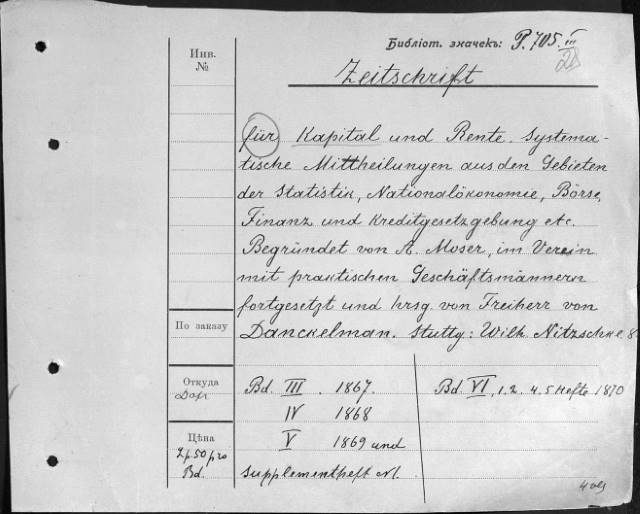 Библіот. значекъ: P. 705. III
28
Инв.
№
Zeitschrift
für Kapital und Rente. Systema-
tische Mittheilungen aus den Gebieten
der Statistik, Nationalökonomie, Börse,
Finanz und Kreditgesetzgebung etc.
Begründet von A. Moser, im Verein
mit praktischen Geschäftsmännern
fortgesetzt und hrsg. von Freiherr von
По заказу
Danckelman. Stuttg: Wilh. Nitzschke 8
Откуда
Bd. III . 1867. Bd. VI, 1. 2. 4. 5 Hefte 1870
IV 1868
V 1869 und
Цѣна
2 p. 50 pro
Bd.
Supplementheft
4